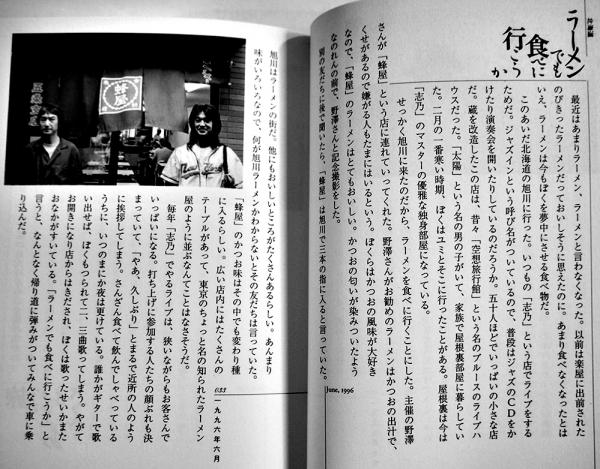 沖縄編
ラーメン
でも
食べに
行こうか
最近はあまりラーメン、ラーメンと言わなくなった。以前は楽屋に出前された
のびきったラーメンだっておいしそうに思えたのに。あまり食べなくなったとは
いえ、ラーメンは今もぼくを夢中にさせる食べ物だ。
このあいだ北海道の旭川に行った。いつもの「志乃」という店でライブをする
ためだ。ジャズインという呼び名がついているので、普段はジャズのCDをか
けたり演奏会を開いたりしているのだろうか。五十人ほどでいっぱいの小さな店
だ。蔵を改造したこの店は、昔々「空想旅行館」という名のブルースのライブハ
ウスだった。「太陽」という名の男の子がいて、家族で屋根裏部屋に暮らしてい
た。二月の一番寒い時期、ぼくはユミとそこに行ったことがある。屋根裏は今は
「志乃」のマスターの優雅な独身部屋になっている。
せっかく旭川に来たのだから、ラーメンを食べに行くことにした。主催の野澤
さんが「蜂屋」という店に連れていってくれた。野澤さんがお勧めのラーメンはかつおの出汁で、
くせがあるので嫌がる人もたまにはいるという。ぼくらはかつおの風味が大好き
なので、「蜂屋」のラーメンはとてもおいしい。かつおの匂いが染みついたよう
なのれんの前で、野澤さんと記念撮影をした。
別の友だちに後で聞いたら、「蜂屋」は旭川で三本の指に入ると言っていた。
June, 1996
旭川はラーメンの街だ。他にもおいしいところがたくさんあるらしい。あんまり
味がいろいろなので、何が旭川ラーメンかわからないとその友だちは言っていた。
「蜂屋」のかつお味はその中でも変わり種
に入るらしい。広い店内にはたくさんの
テーブルがあって、東京のちょっと名の知られたラーメン
屋のように並ぶなんてことはなさそうだ。
毎年「志乃」でやるライブは、狭いながらもお客さんで
いっぱいになる。打ち上げに参加する人たちの顔ぶれも決
まっていて、「やあ、久しぶり」とまるで近所の人のよう
に挨拶してしまう。さんざん食べて飲んでしゃべっている
うちに、いつのまにか夜は更けている。誰かがギターで歌
い出せば、ぼくもつられて二、三曲歌ってしまう。やがて
お開きになり店からはきだされ、ぼくは歌ったせいかまた
おなかがすいている。「ラーメンでも食べに行こうか」と
言うと、なんとなく帰り道に弾みがついてみんなで車に乗
り込んだ。
033
一九九六年六月
蜂屋